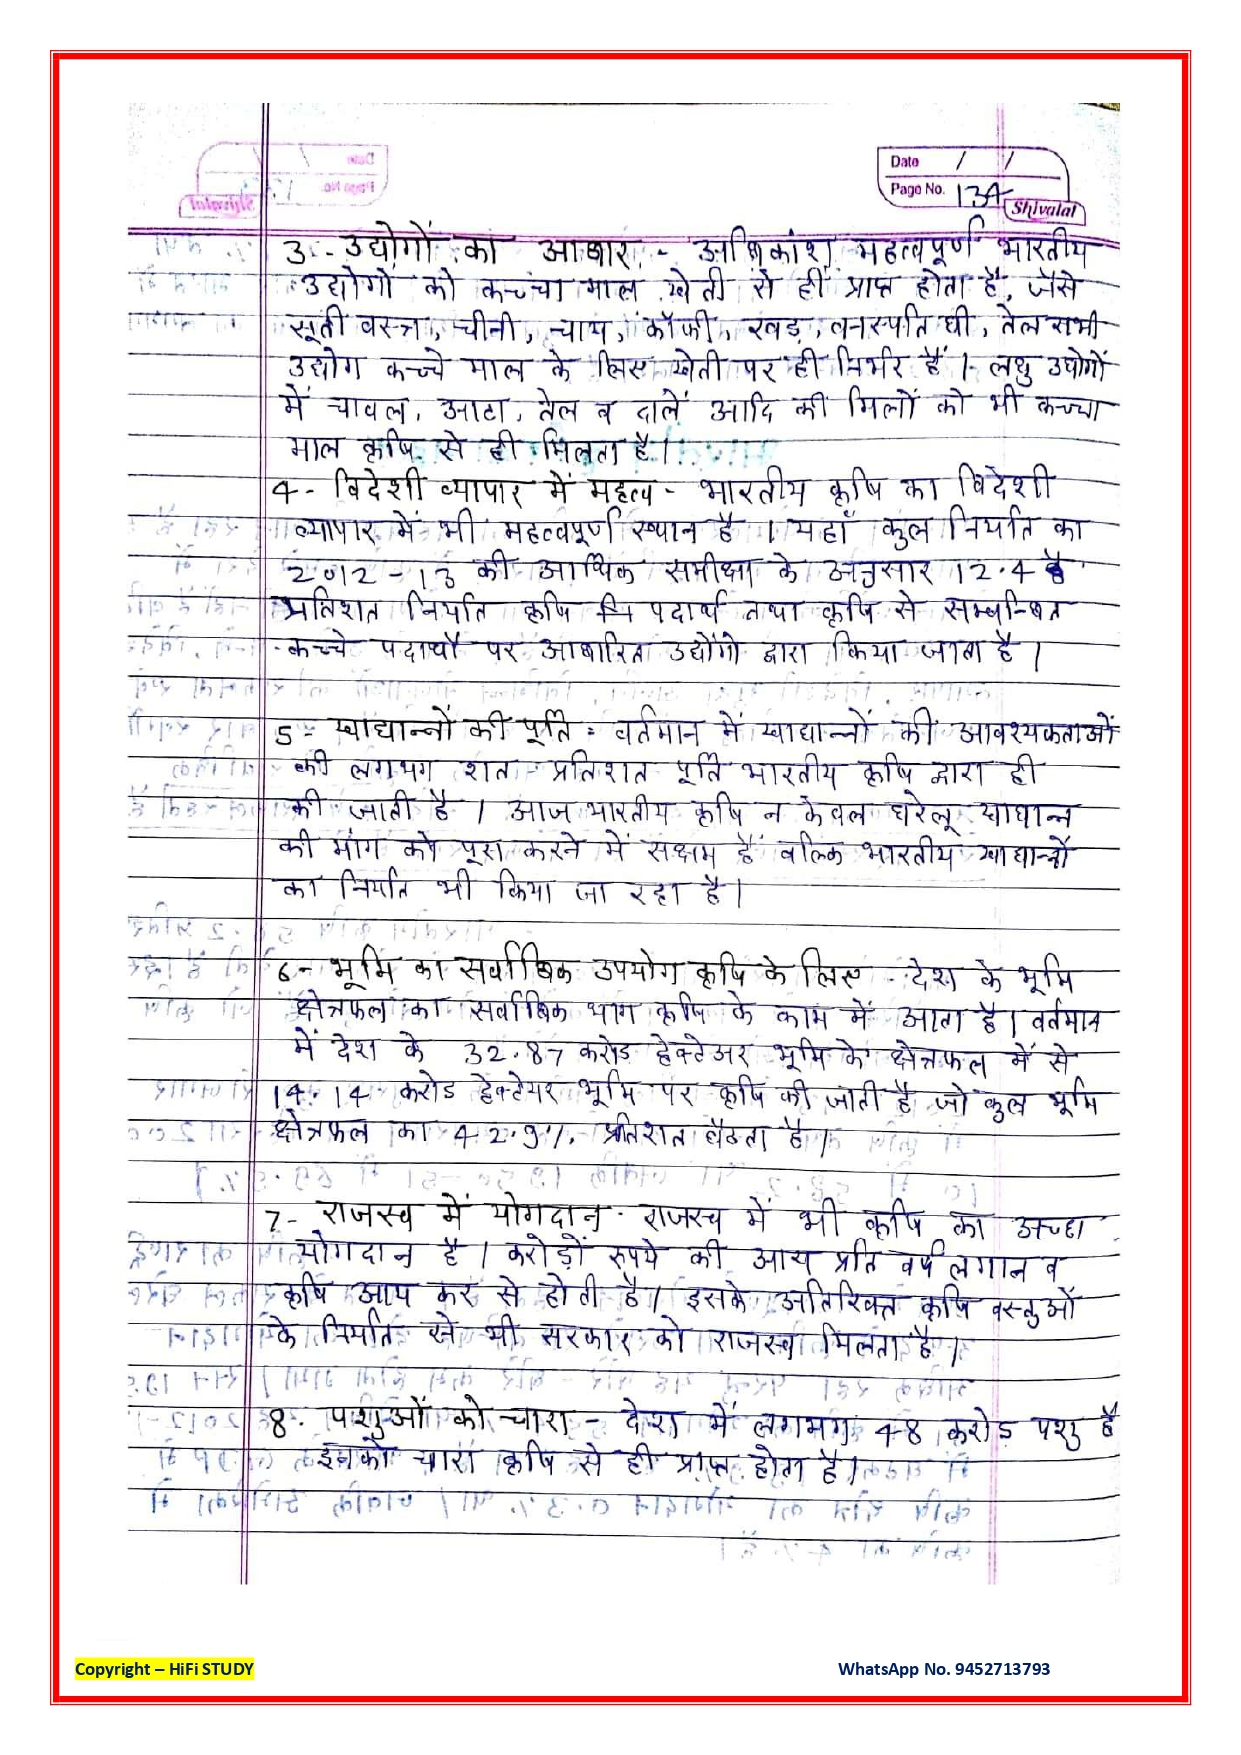 Date / /
Page No. 134
Shivalal
3 - उद्योगों का आधार - अधिकांश महत्वपूर्ण भारतीय
उद्योगों को कच्चा माल खेती से ही प्राप्त होता है, जैसे
सूती वस्त्र, चीनी, चाय, कॉफी, रबड़, वनस्पति घी, तेल सभी
उद्योग कच्चे माल के लिए खेती पर ही निर्भर हैं। लघु उद्योगों
में चावल, आटा, तेल व दालें आदि की मिलों को भी कच्चा
माल कृषि से ही मिलता है।
4 - विदेशी व्यापार में महत्व - भारतीय कृषि का विदेशी
व्यापार में भी महत्वपूर्ण स्थान है। यहाँ कुल निर्यात का
2012-13 की आर्थिक समीक्षा के अनुसार 12.4
प्रतिशत निर्यात कृषि पदार्थ तथा कृषि से सम्बन्धित
कच्चे पदार्थों पर आधारित उद्योगो द्वारा किया जाता है।
5 - खाद्यान्नों की पूर्ति - वर्तमान में खाद्यान्नों की आवश्यकताओं
की लगभग शत - प्रतिशत पूर्ति भारतीय कृषि द्वारा ही
की जाती है। आज भारतीय कृषि न केवल घरेलू खाधान्न
की मांग को पूरा करने में सक्षम हैं बल्कि भारतीय खाद्यान्नों
का निर्यात भी किया जा रहा है।
6 - भूमि का सर्वाधिक उपयोग कृषि के लिए - देश के भूमि
क्षेत्रफल का सर्वाधिक भाग कृषि के काम में आता है। वर्तमान
में देश के 32.87 करोड हेक्टेअर भूमि के क्षेत्रफल में से
14.14 करोड हेक्टेयर भूमि पर कृषि की जाती है जो कुल भूमि
क्षेत्रफल का 42.9% प्रतिशत बैठता है।
7 - राजस्व में योगदान - राजस्व में भी कृषि का अच्छा
योगदान है। करोड़ों रुपये की आय प्रति वर्ष लगान व
कृषि आय कर से होती है। इसके अतिरिक्त कृषि वस्तुओं
के निर्यात से भी सरकार को राजस्व मिलता है।
8. पशुओं को चारा - देश में लगभग 48 करोड पशु है
इनको चारा कृषि से ही प्राप्त होता है।
Copyright – HiFi STUDY
WhatsApp No. 9452713793